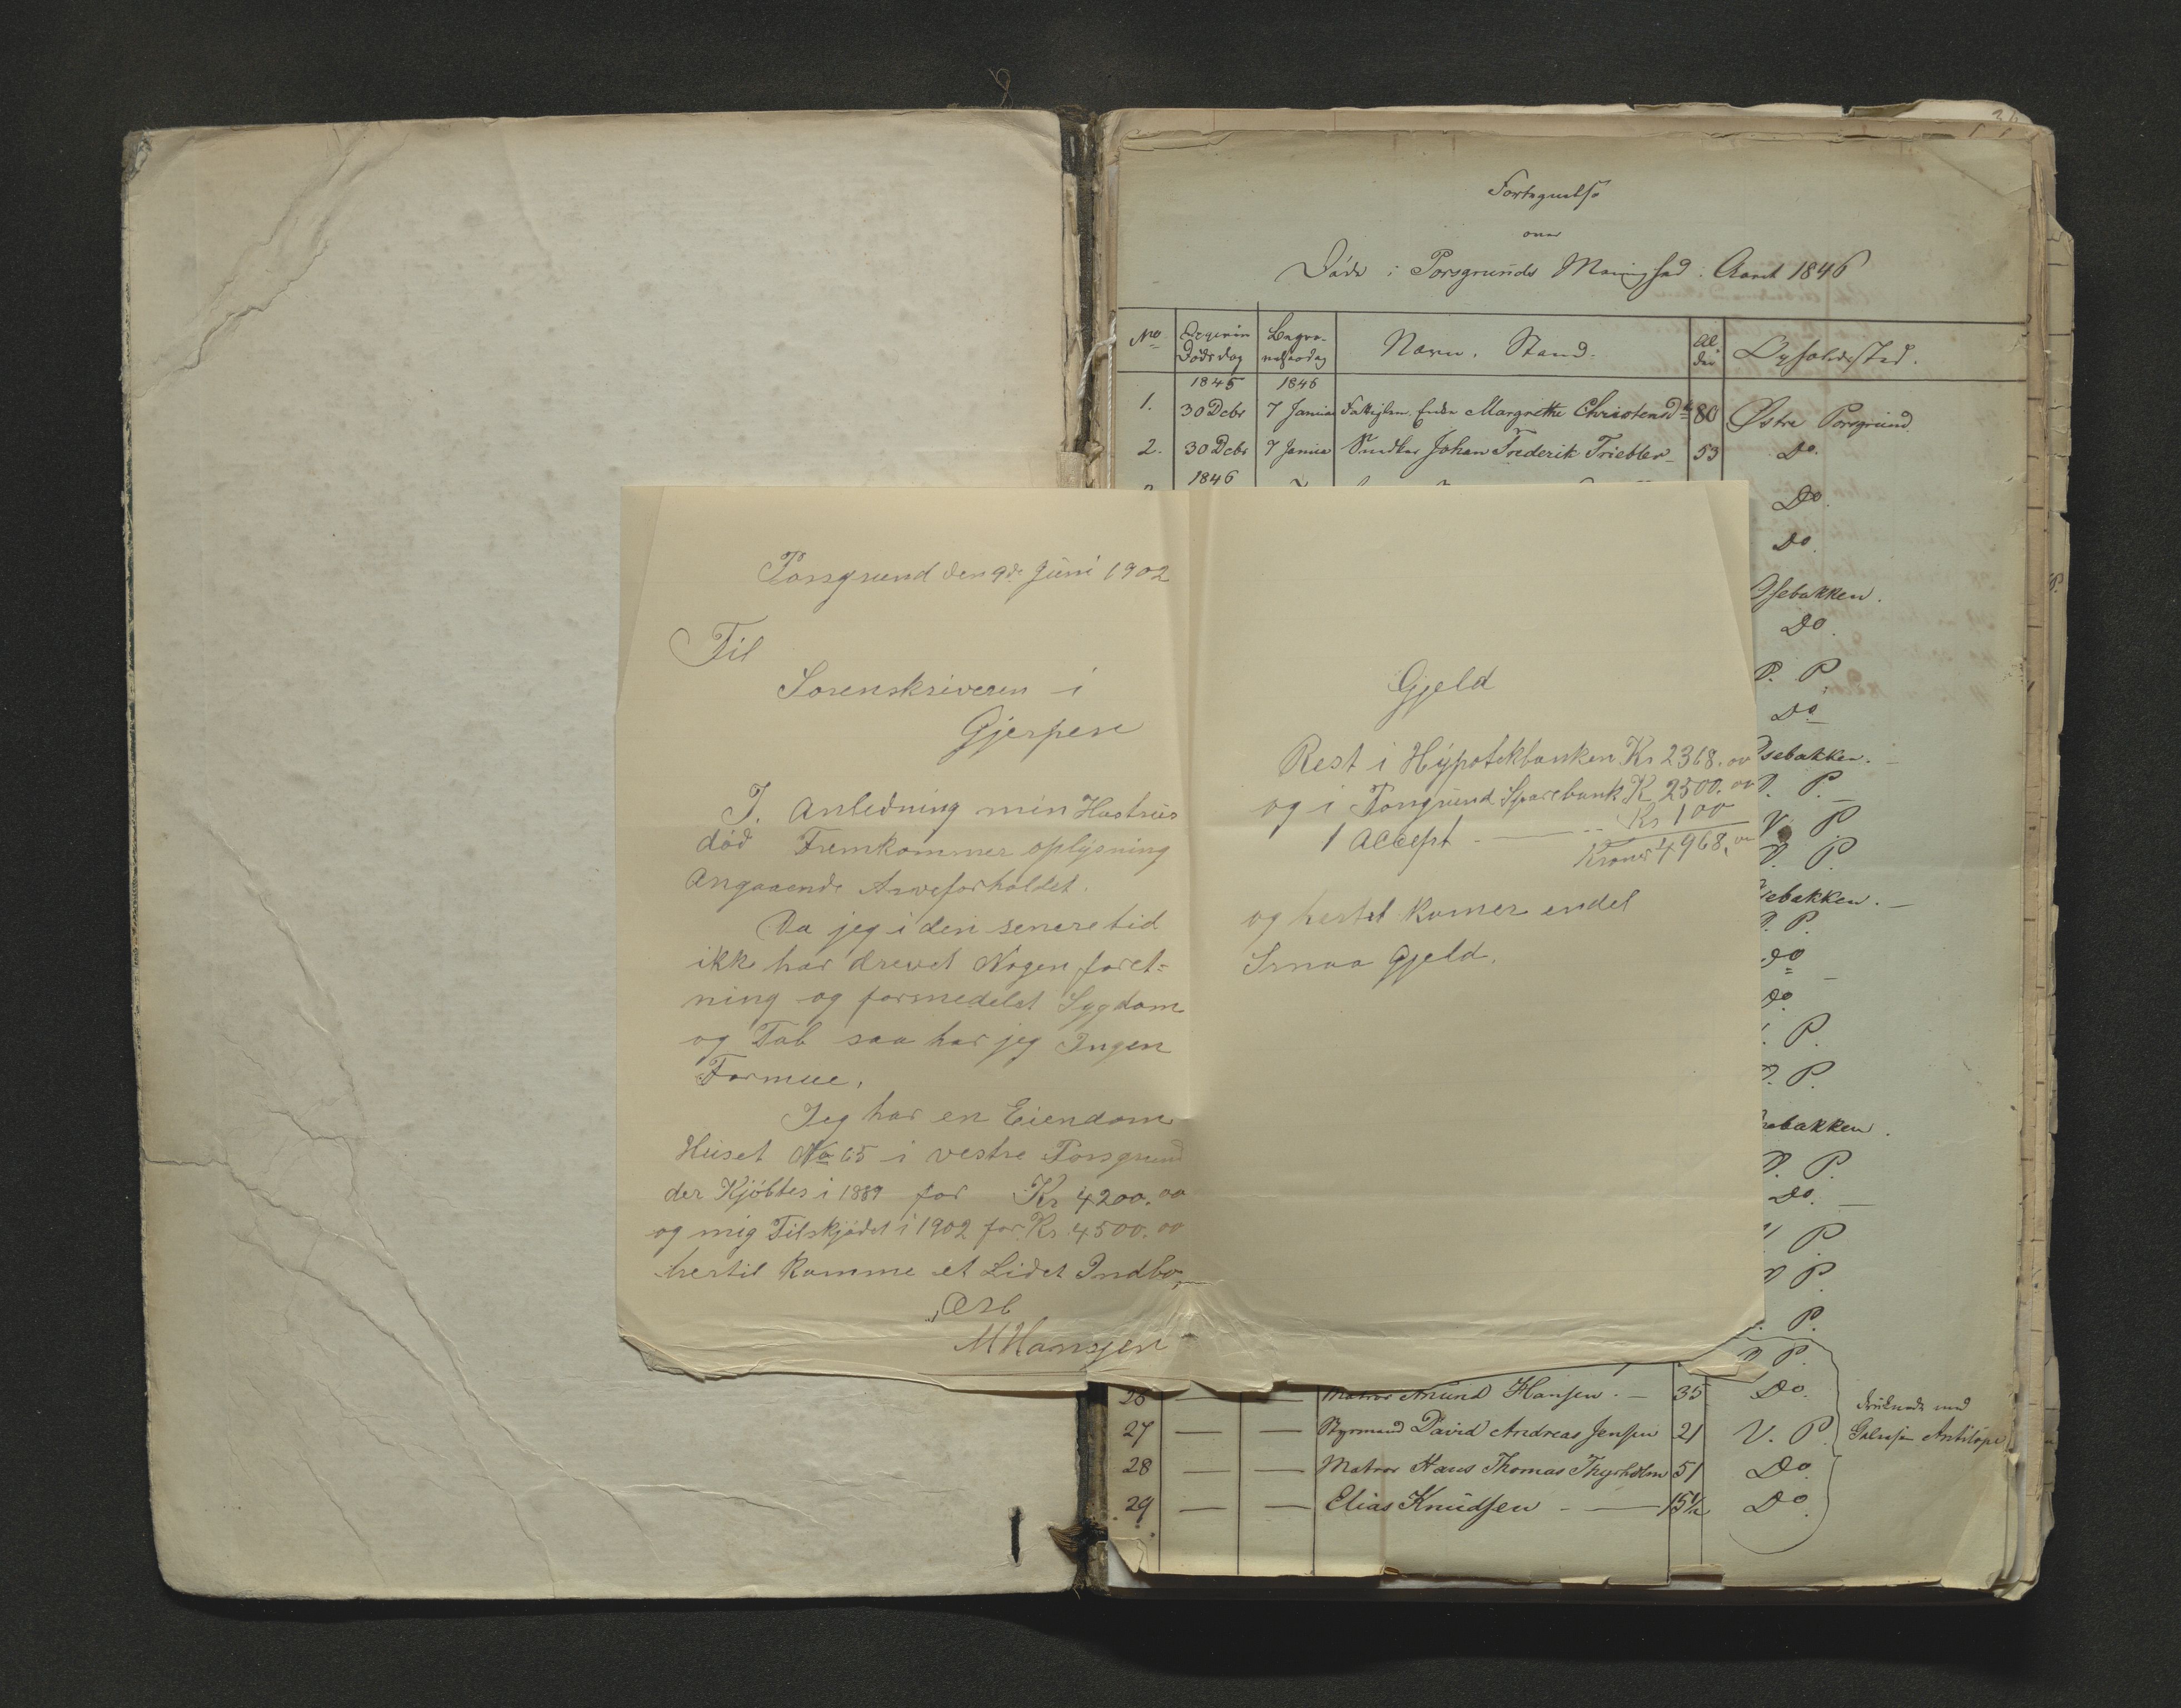 Fortegnelse
over
Døde i Porsgrunds Menighed i Aaret 1846
No
Dødsdag
Begra-
velsesdag
Navn. Stand.
Al
der
Opholdssted.
1845
1846
1. 30 Dcbr 7 Januar Fattiglem. Enke Margrethe Christensd 80 Østre Porsgrund
2. 30 Dcbr 7 Januar Snedker Johan Frederik Friebler 53 Do.
1846
Do.
Do.
Osebakken.
Do.
P.
Do.
Osebakken.
P.
P.
P.
Osebakken.
P.
Do
Do.
P.
P.
Osebakken.
P.
Do.
P.
P.
P.
P.
26 — — Matros Amund Hansen. — 35 Do.
27 — — Styrmand David Andreas Jensen 21 V. P.
28 — — Matros Hans Thomas Thyrholm 51 Do.
29 — — Elias Knudsen — 15 Do.
druknede med
Galeasen Antilope
Porsgrund den 9de Juni 1902
Til
Sorenskriveren i
Gjerpen
I. Anledning min Hustrus
død Fremkommer oplysning
Angaaende Arveforholdet.
Da jeg i den senere tid
ikke har drevet Nogen foret=
ning og formedelst Sygdom
og Tab saa har jeg Ingen
Formue.
Jeg har en Eiendom
Huset No 65 i vestre Porsgrund
der Kjöbtes i 1889 for Kr 4200.00
og mig Tilskjödet i 1902 for Kr. 4500.00
hertil komme et Lidet Indbo,
Ærb
M Hansen
Gjeld
Rest i Hypotekbanken Kr 2368.00
og i Porsgrund Sparebank K 2500.00
1 Accept — Kr 100
Kroner 4968.00
og hertil komer endel
Smaa Gjeld.